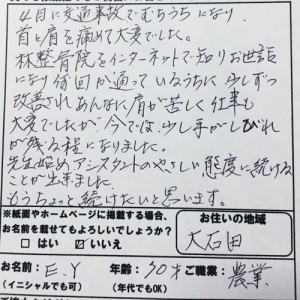 4月に交通事故でむちうちになり
首と肩を痛めて大変でした。
林整骨院をインターネットで知りお世話
になり 回か通っているうちに少しずつ
改善されあんなに肩が苦しく仕事も
大変でしたが、今では、少し手がしびれ
が残る程になりました。
先生始め、アシスタントのやさしい態度に続ける
ことが出来ました。
もうちょっと続けたいと思います。
※紙面やホームページに掲載する場合、
お名前を載せてもよろしいでしょうか?
□ はい ☑ いいえ
お住いの地域
大石田
お名前:E.Y 年齢:50才 ご職業:農業
(イニシャルでも可) (年代でもOK)